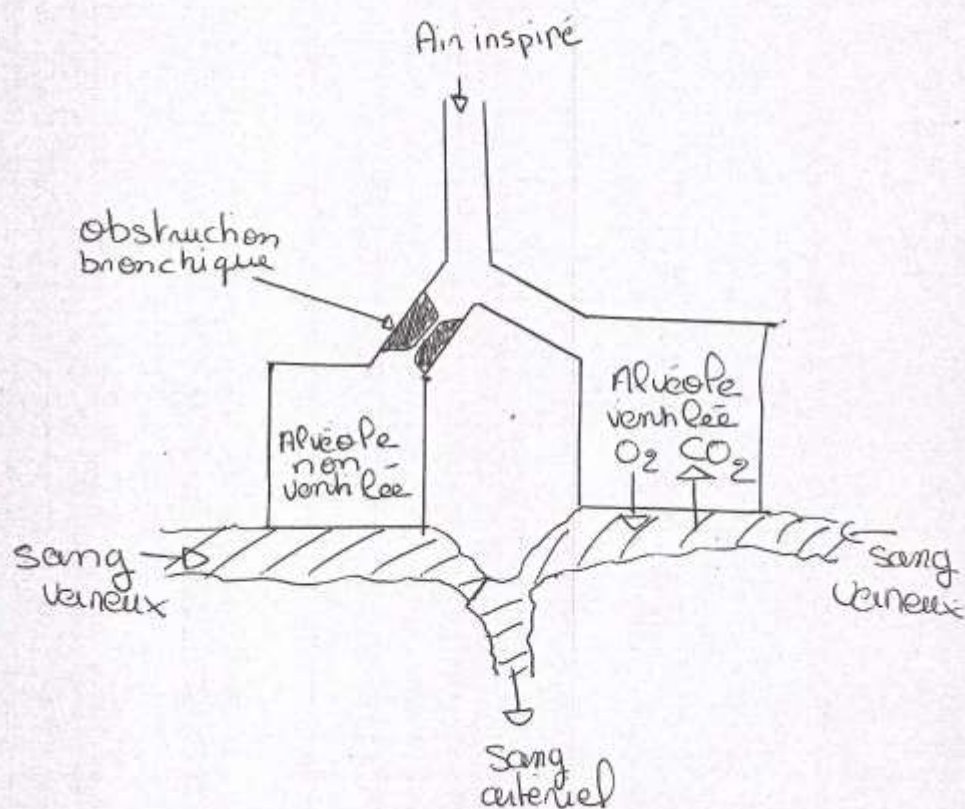 Air inspiré
Obstruction
bronchique
Alvéole
non
ventilée
Alvéole
ventilée
O2 CO2
Sang
veineux
Sang
veineux
Sang
artériel